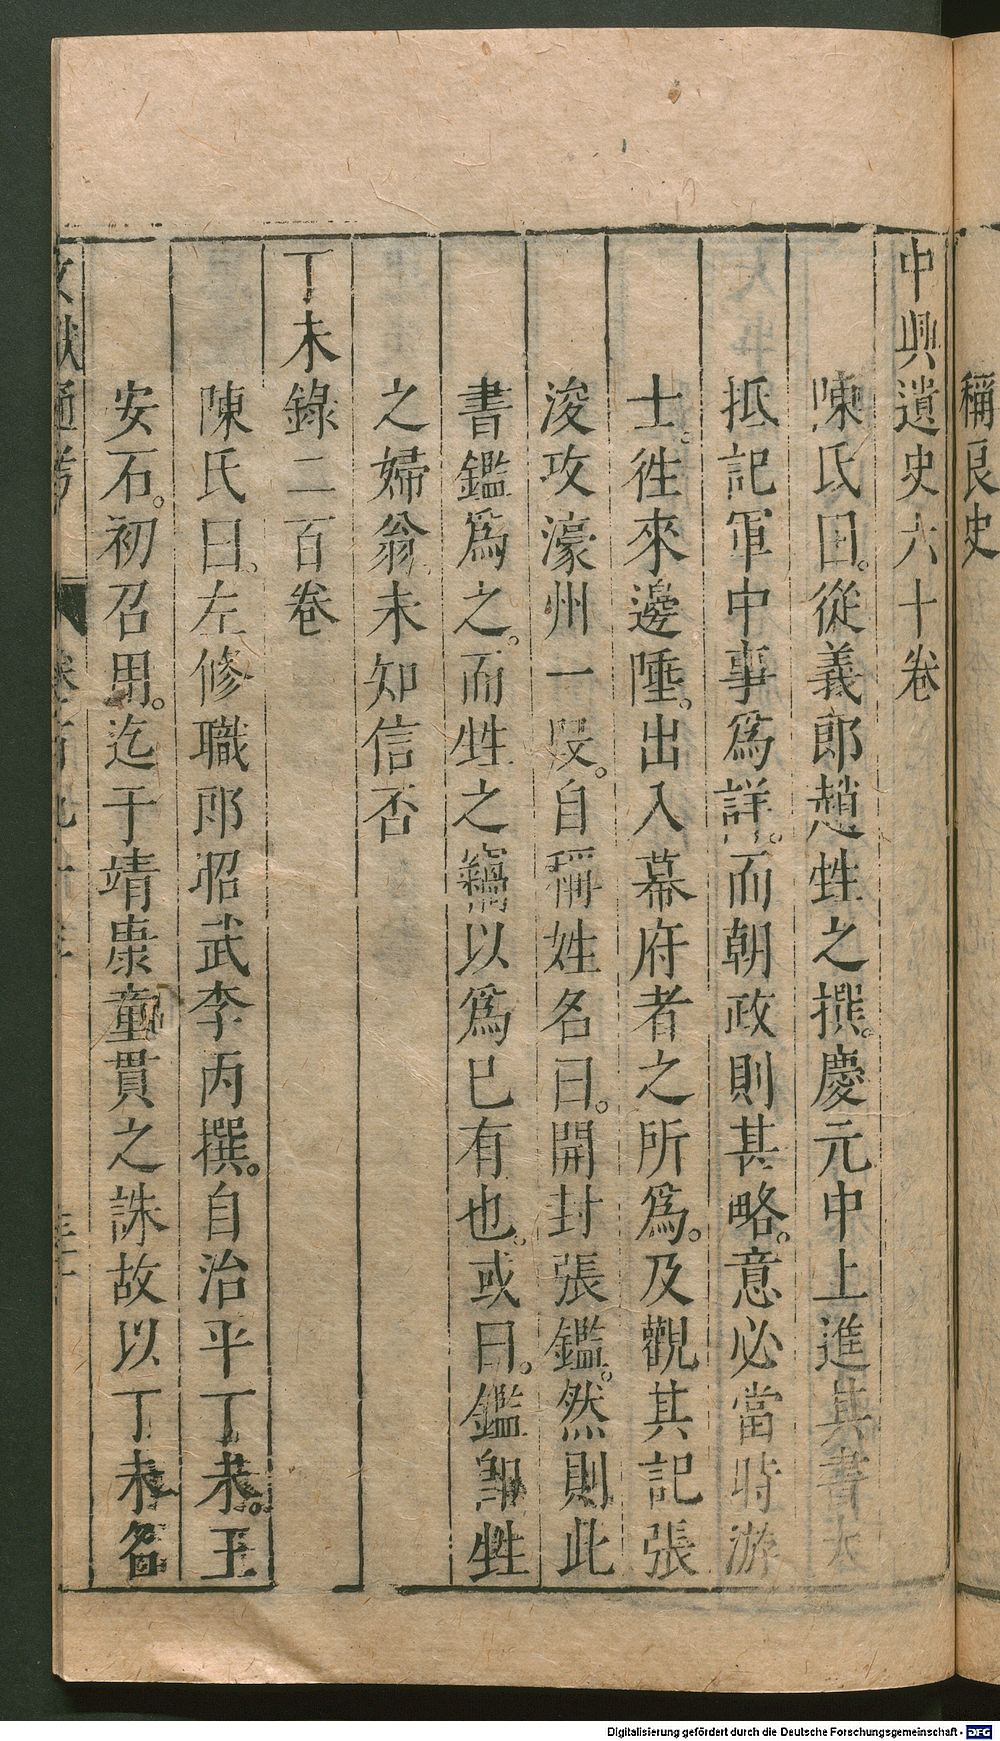 稱良史
中興遺史六十卷
陳氏曰。從義郎趙甡之撰。慶元中上進其書大
抵記軍中事爲詳。而朝政則甚略。意必當時游
士。徃來邊陲。出入幕府者之所爲。及觀其記張
浚攻濠州一段。自稱姓名曰。開封張鑑。然則此
書鑑爲之。而甡之竊以爲已有也。或曰。鑑卽甡
之婦翁。未知信否
丁未錄二百卷
陳氏曰。左修職郎昭武李丙撰。自治平丁未。王
安石。初召用。迄于靖康童貫之誅故以丁未名
文獻通考 卷百九十三
Digitalisierung gefördert durch die Deutsche Forschungsgemeinschaft - DFG